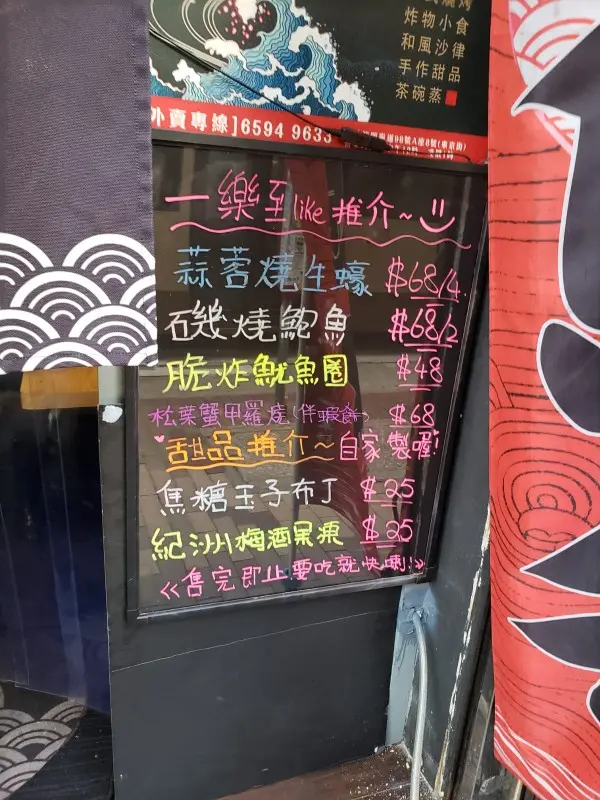 炸物小食
和風沙律
手作甜品
茶碗蒸
外賣專線]6594 9633
一樂至like推介~
蒜蓉燒生蠔 $68/4
磯燒鮑魚 $68/2
脆炸魷魚圈 $48
松葉蟹甲羅燒(伴蝦餅) $68
甜品推介~自家製喔!
焦糖王子布丁 $25
紀州梅酒果凍 $25
<<售完即止要吃就快喇!>>